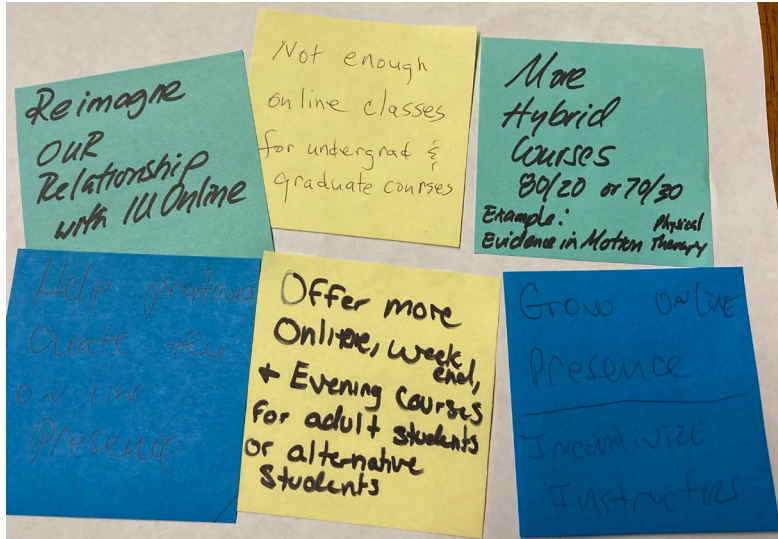 Reimagine
OUR
Relationship
with IU Online
Not enough
online classes
for undergrad &
graduate courses
More
Hybrid
Courses
80/20 or 70/30
Example: Physical
Evidence in Motion Therapy
Help
Create the
ON line
Presence
Offer more
Online, week
end,
+ Evening Courses
for adult students
or alternative
students
Grow ONLINE
Presence
INCENTIVIZE
Instructors